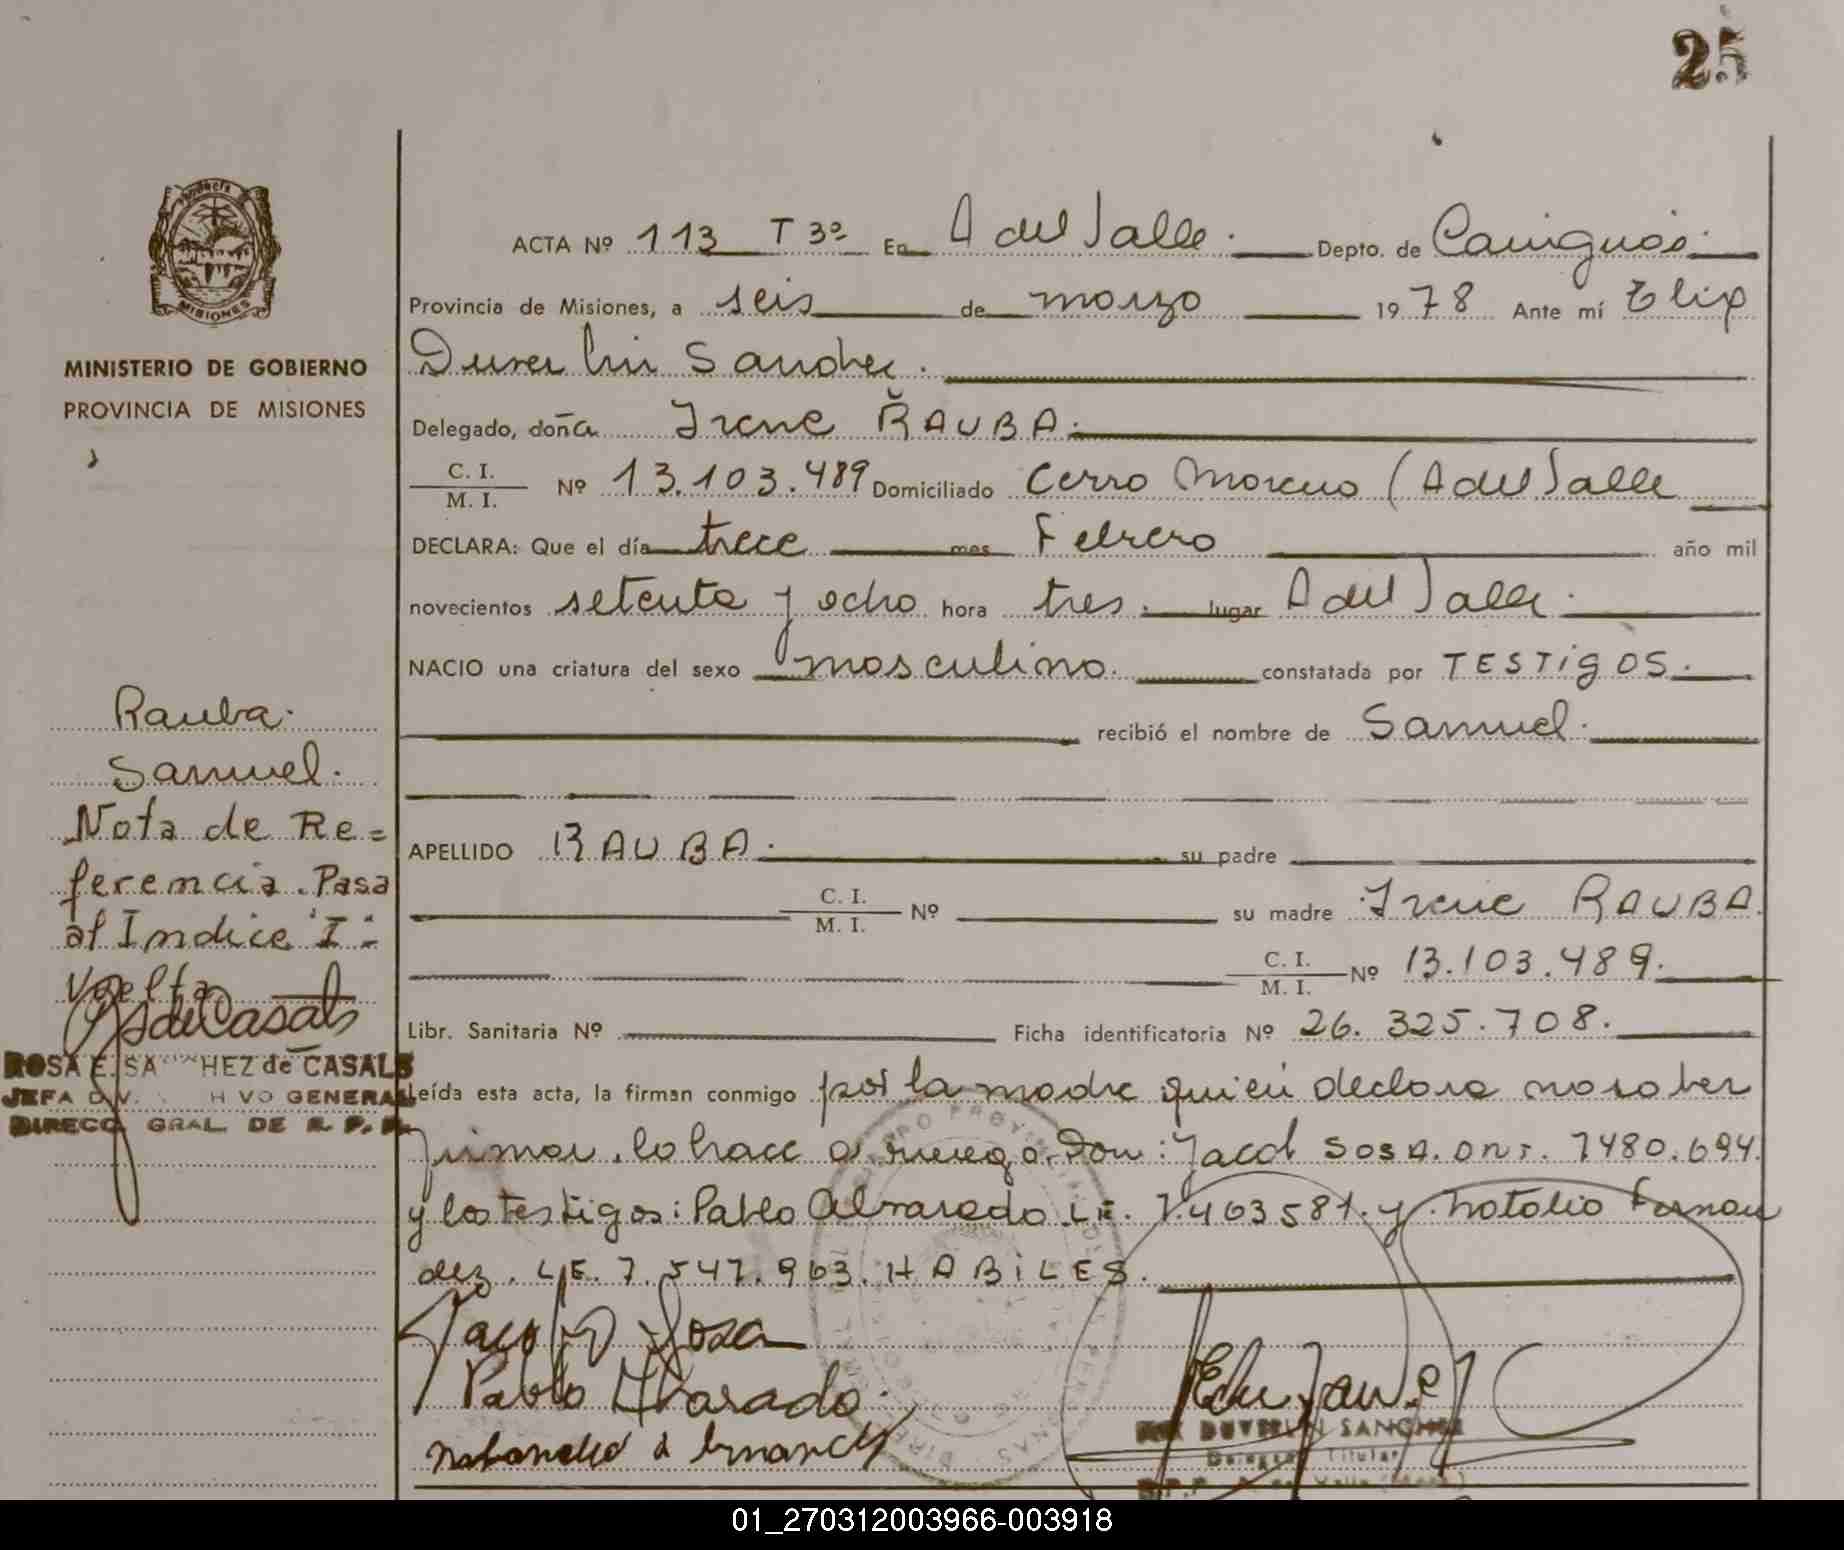 25
PROVINCIA
MISIONES
MINISTERIO DE GOBIERNO
PROVINCIA DE MISIONES
ACTA Nº 113 T 3º En A del Valle. Depto. de Cainguás.
Provincia de Misiones, a seis de marzo 1978 Ante mí Elix
Duverlin Sanchez.
Delegado, doña Irene RAUBA.
C. I.
M. I. Nº 13.103.489 Domiciliado Cerro Moreno (A del Valle
DECLARA: Que el día trece mes Febrero año mil
novecientos setenta y ocho hora tres. lugar A del Valle.
NACIO una criatura del sexo masculino. constatada por TESTigOS.
recibió el nombre de Samuel.
APELLIDO RAUBA. su padre
C. I.
M. I. Nº su madre Irene RAUBA
C. I.
M. I. Nº 13.103.489.
Libr. Sanitaria Nº Ficha identificatoria Nº 26.325.708.
Leída esta acta, la firman conmigo por la madre quien declara no saber
firmar, lo hace a ruego. Don: Jacob SOSA. DNI. 7480.694.
y los testigos: Pablo Alvarado. LE. 7.463581. y Natalio Fernan
dez. LE. 7.547.963. HABiLES.
Jacob Sosa
Pablo Alvarado.
DUVERLIN SANCHEZ
Delegado Titular
Rauba.
Samuel.
Nota de Re=
ferencia. Pasa
al Indice "I"
Vuelta
RsdeCasals
ROSA E. SANCHEZ de CASALS
JEFA DIV. HIVO GENERAL
DIRECC. GRAL DE R. P. P.
01_270312003966-003918